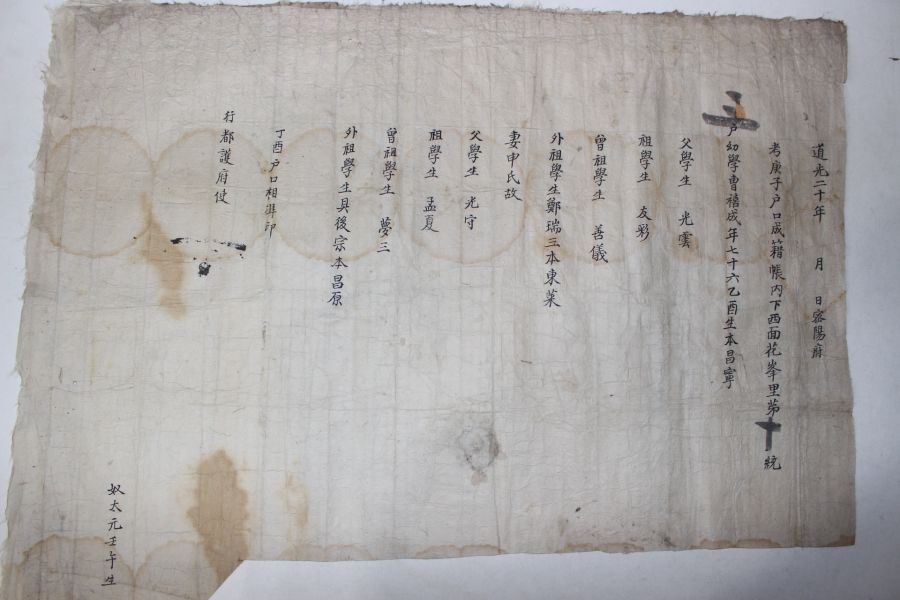 道光二十年 月 日密陽府
考庚子戶口成籍帳內下西面花峯里第十統
三戶幼學曺禧成年七十六乙酉生本昌寧
父學生 光雲
祖學生 友彩
曾祖學生 善儀
外祖學生鄭瑞三本東萊
妻申氏故
父學生 光守
祖學生 孟夏
曾祖學生 夢三
外祖學生具後宗本昌原
丁酉戶口相準印
行都護府使
奴太元壬午生